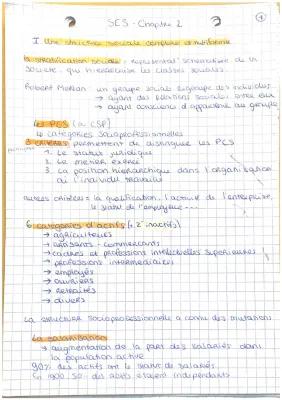 SES - Chapitre 2
1
I Une structure sociale complexe et multiforme
la stratification sociale : représentat° schématique de la
société, qui hiérarchise les classes sociales
Robert Merton : un groupe social regroupe des individus
→ ayant des relations sociales entre eux
→ ayant conscience d'appartenir au groupe
Les PCS (ex CSP)
↳ catégories socioprofessionnelles
3 critères permettent de distinguer les PCS
1. Le statut juridique
2. Le métier exercé
3. La position hiérarchique dans l'organisation
où l'individu travaille
autres critères : la qualification, l'activité de l'entreprise,
le statut de l'employeur...
6 catégories d'actifs (+ 2 inactifs)
→ agriculteurs
→ artisants - commerçants
→ cadres et professions intellectuelles supérieures
→ professions intermédiaires
→ employés
→ ouvriers
→ retraités
→ divers
La structure socioprofessionnelle a connu des mutations
La salarisation
→ augmentation de la part des salariés dans
la population active
90% des actifs ont le statut de salariés
En 1900 50% des actifs étaient indépendants